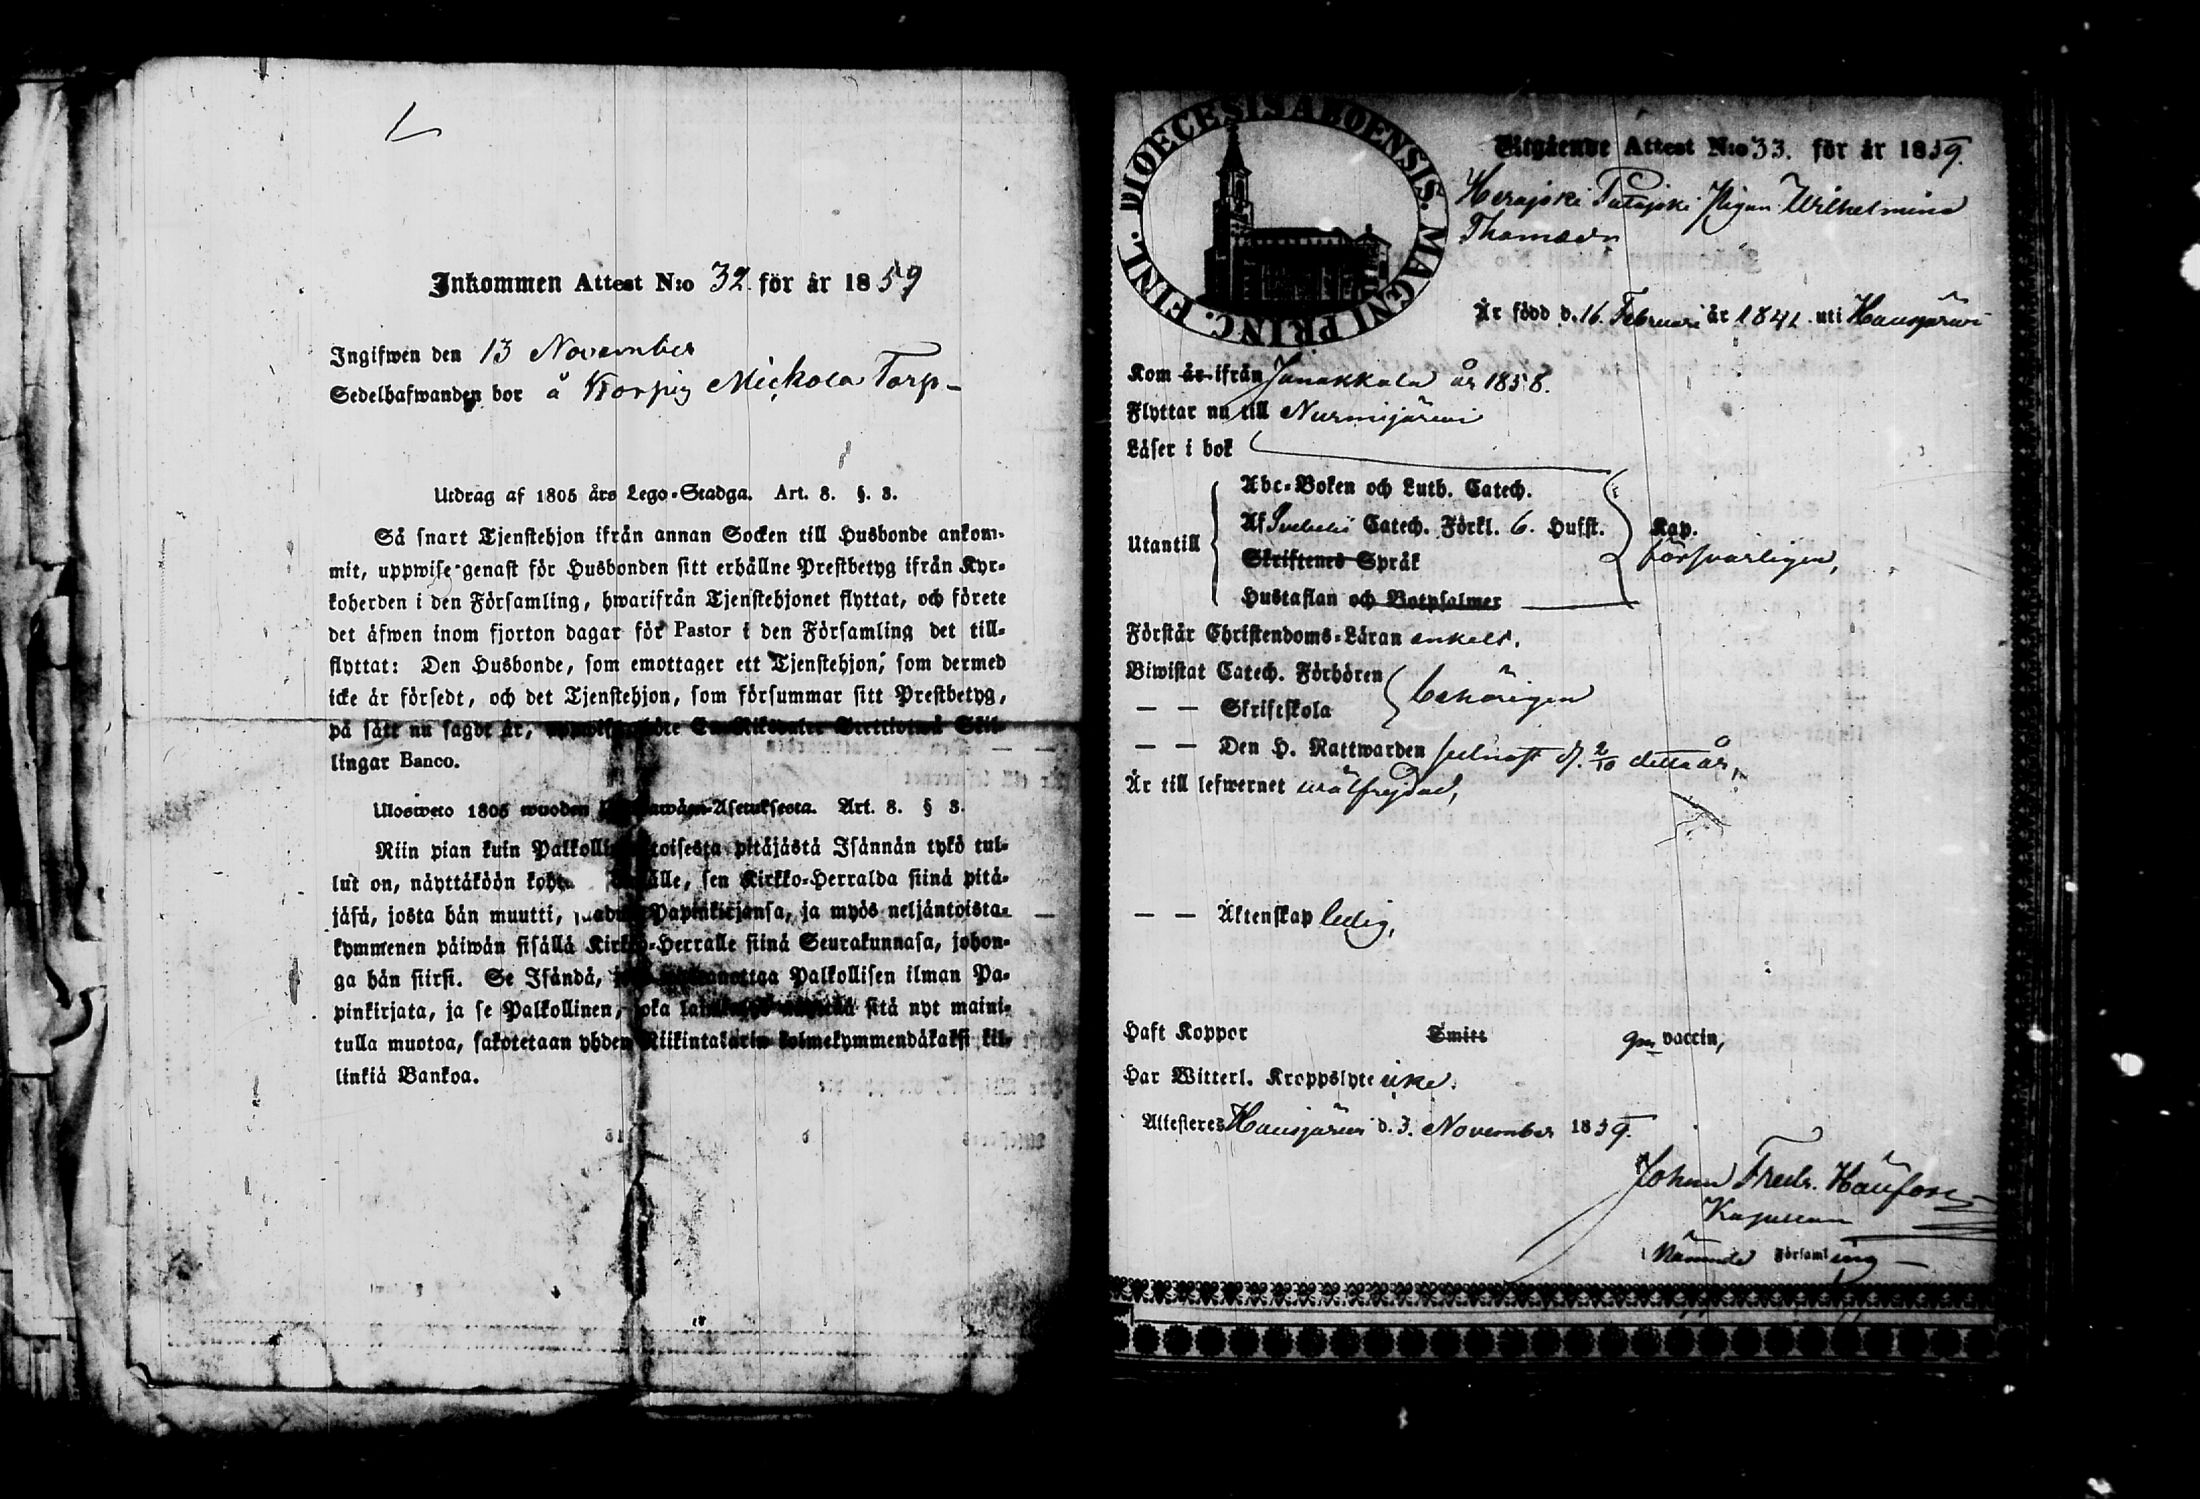 Inkommen Attest N:o 32 för år 1859
Ingifwen den 13 November
Sedelhafwanden bor å Korpig Mickola Torp –
Utdrag af 1805 års Lego-Stadga. Art. 8. §. 8.
Så snart Tjenstehjon ifrån annan Socken till Husbonde ankom-
mit, uppwise genast för Husbonden sitt erhållne Prestbetyg ifrån Kyr-
koherden i den Församling, hwarifrån Tjenstehjonet flyttat, och förete
det äfwen inom fjorton dagar för Pastor i den Församling det till-
flyttat: Den Husbonde, som emottager ett Tjenstehjon, som dermed
icke är försedt, och det Tjenstehjon, som försummar sitt Prestbetyg,
på sätt nu sagdt är, böte En Riksdaler Trettiotwå Skil-
lingar Banco.
Ulosweto 1805 wuoden Asetuksesta. Art. 8. § 8.
Niin pian kuin toisesta pitäjästä Isännän tykö tul-
lut on, näyttäköön sen Kirkko-Herralda siinä pitä-
jäsä, josta hän muutti, Papinkirjansa, ja myös neljäntoista-
kymmenen päiwän sisällä Kirkko-Herralle siinä Seurakunnasa, johon-
ga hän siirsi. Se Isändä, Palkollisen ilman Pa-
pinkirjata, ja se Palkollinen, joka sitä nyt maini-
tulla muotoa, sakotetaan yhden Riikintalarin kolmekymmendäkaksi kil-
linkiä Bankoa.
DIOECESIS ABOENSIS. MAGNI PRINC. FINL.
Utgående Attest N:o 33. för år 1859.
Herajoki Pigan Wilhelmina
Thomasdr
Är född d. 16 Februari år 1841 uti Hausjärwi
Kom år ifrån Janakkala år 1858.
Flyttar nu till Nurmijärwi
Läser i bok
Abc-Boken och Luth. Catech.
Utantill Af Svebelii Catech. Förkl. 6. Hufst. Kap.
Skriftenes Språk försvarligen,
Hustaflan och Botpsalmer
Förstår Christendoms-Läran enkelt.
Biwistat Catech. Förhören behörigen
— — Skriftskola
— — Den H. Nattwarden sednast d. 2/10 detta år,
Är till lefwernet wälfrejdad,
— — Äktenskap ledig,
Haft Koppor Smitt gm vaccin,
Har Witterl. Kroppslyte icke.
Attesteres Hausjärwi d. 3. November 1859.
Johan Fredr.
Kapellan
i Nämnde Församling –